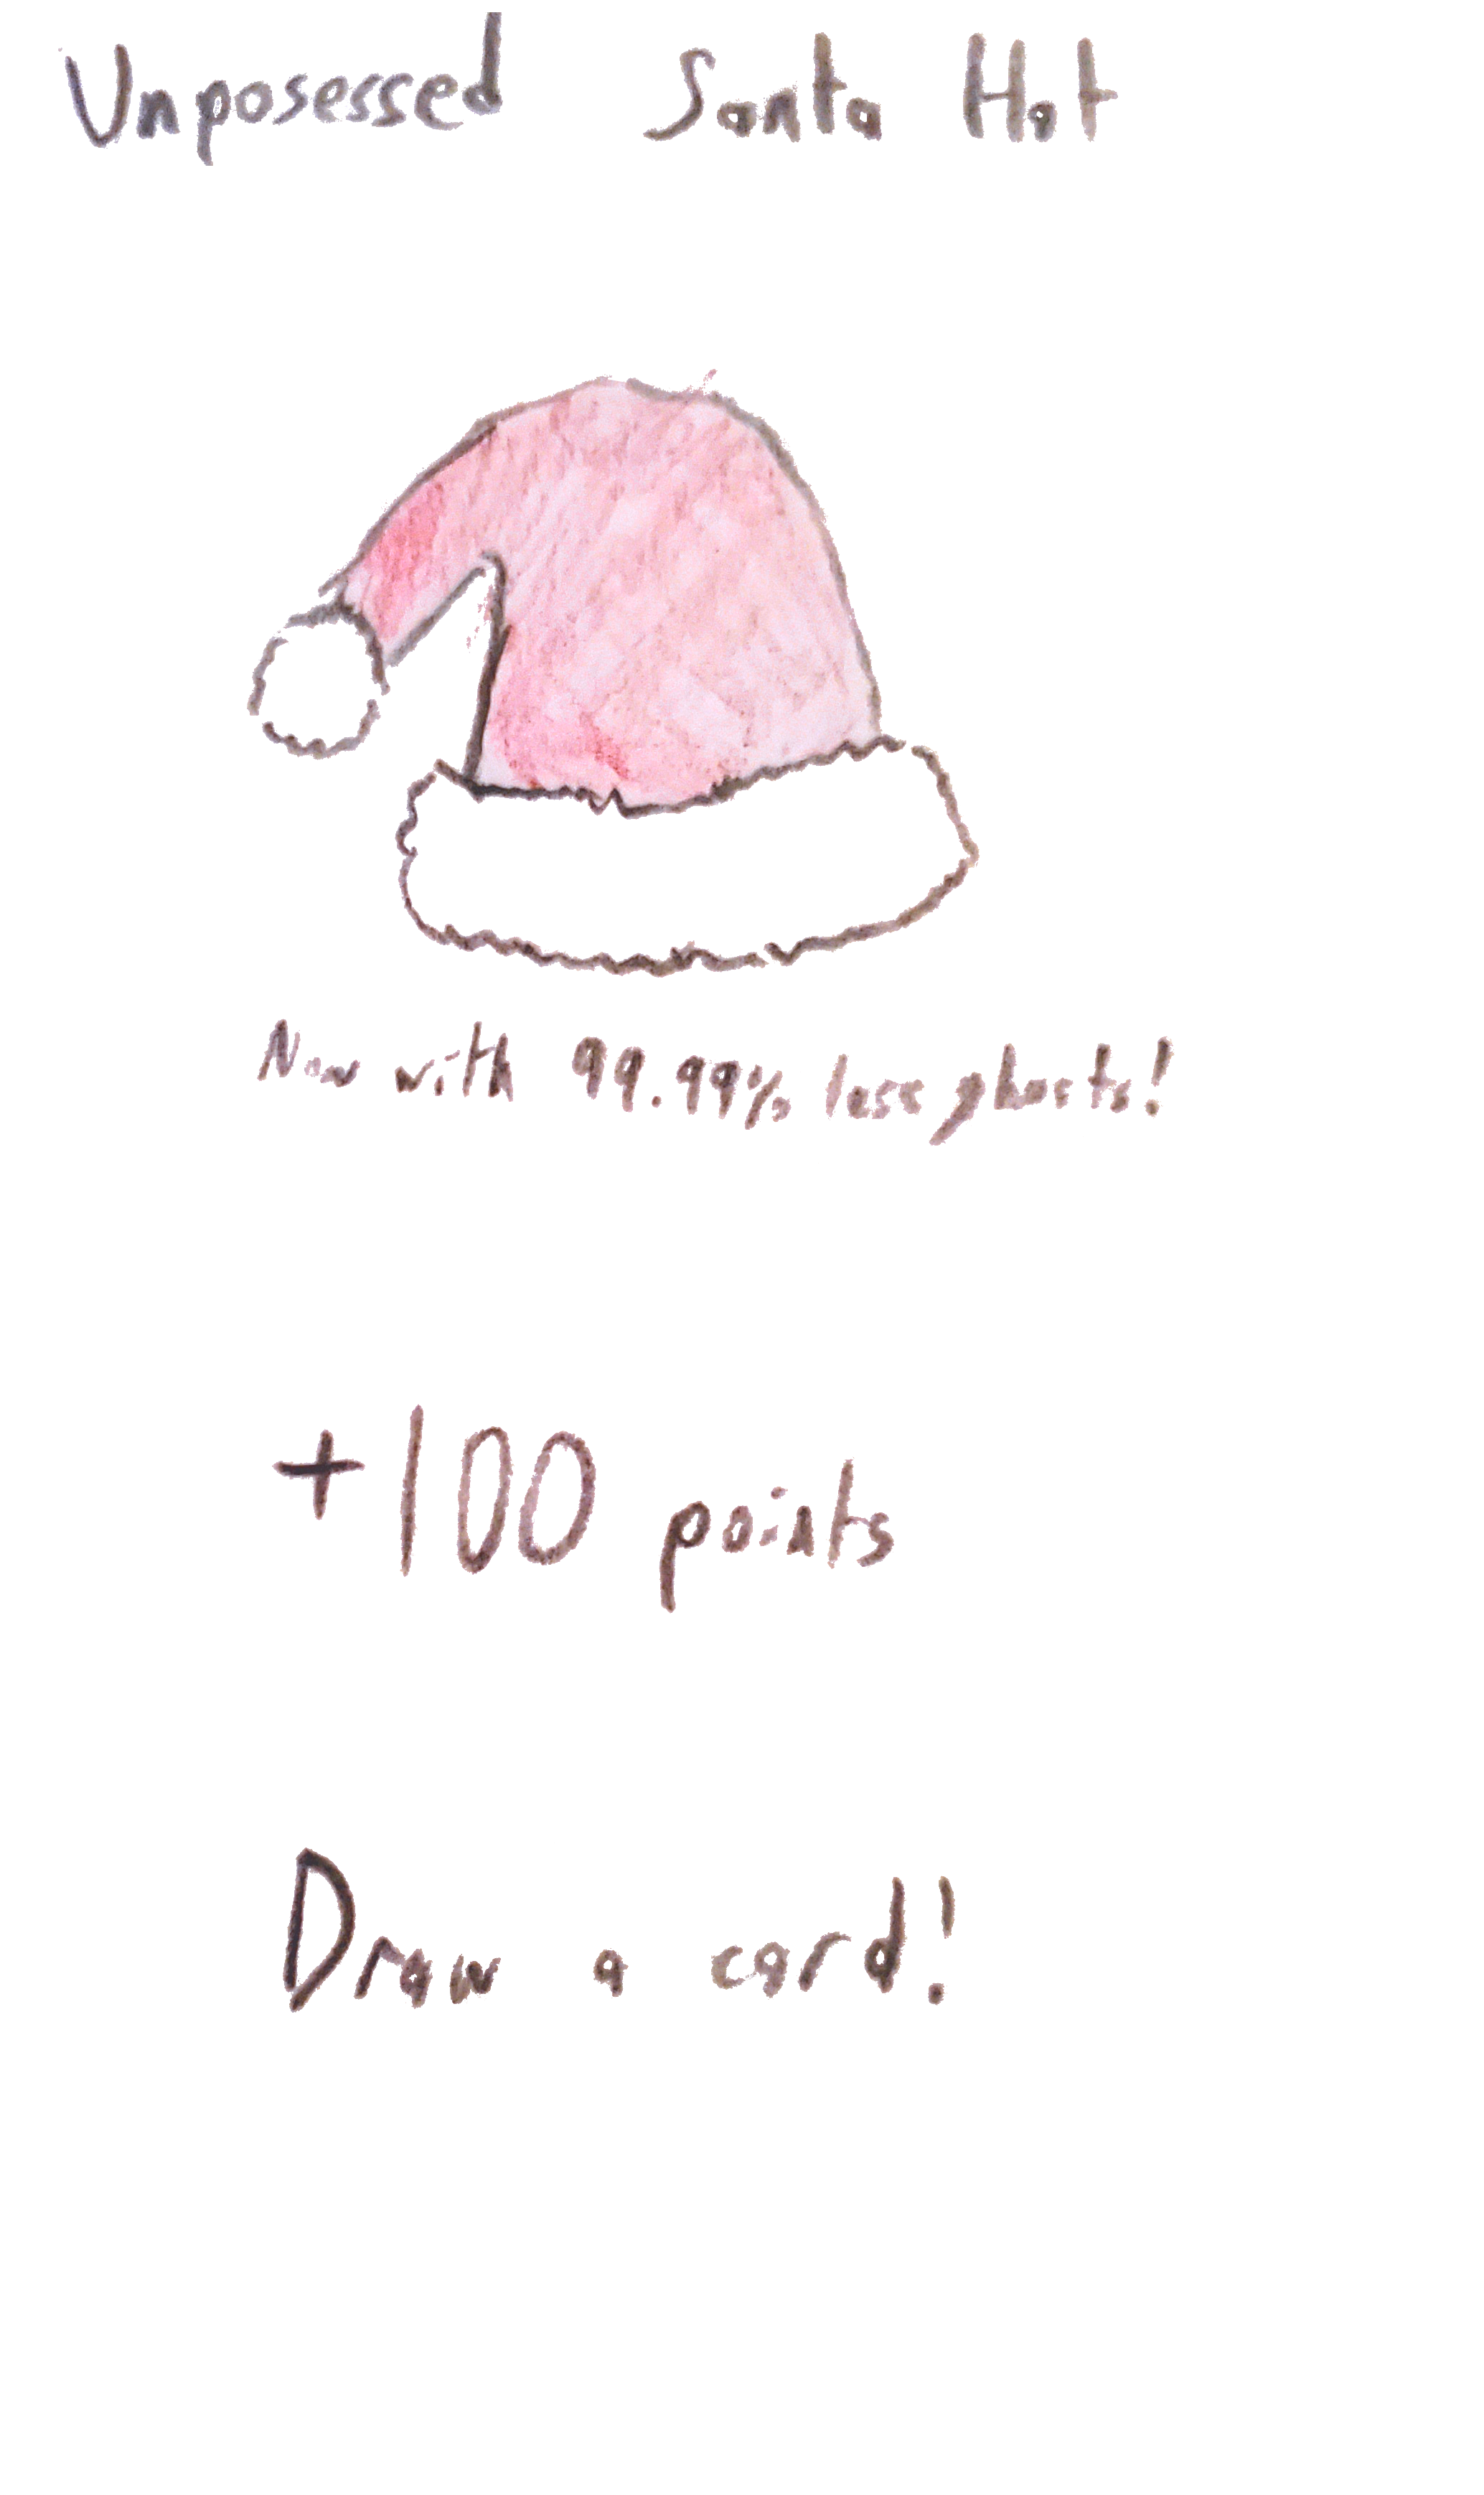 Unposessed Santa Hat
Now with 99.99% less ghosts!
+100 points
Draw a card!